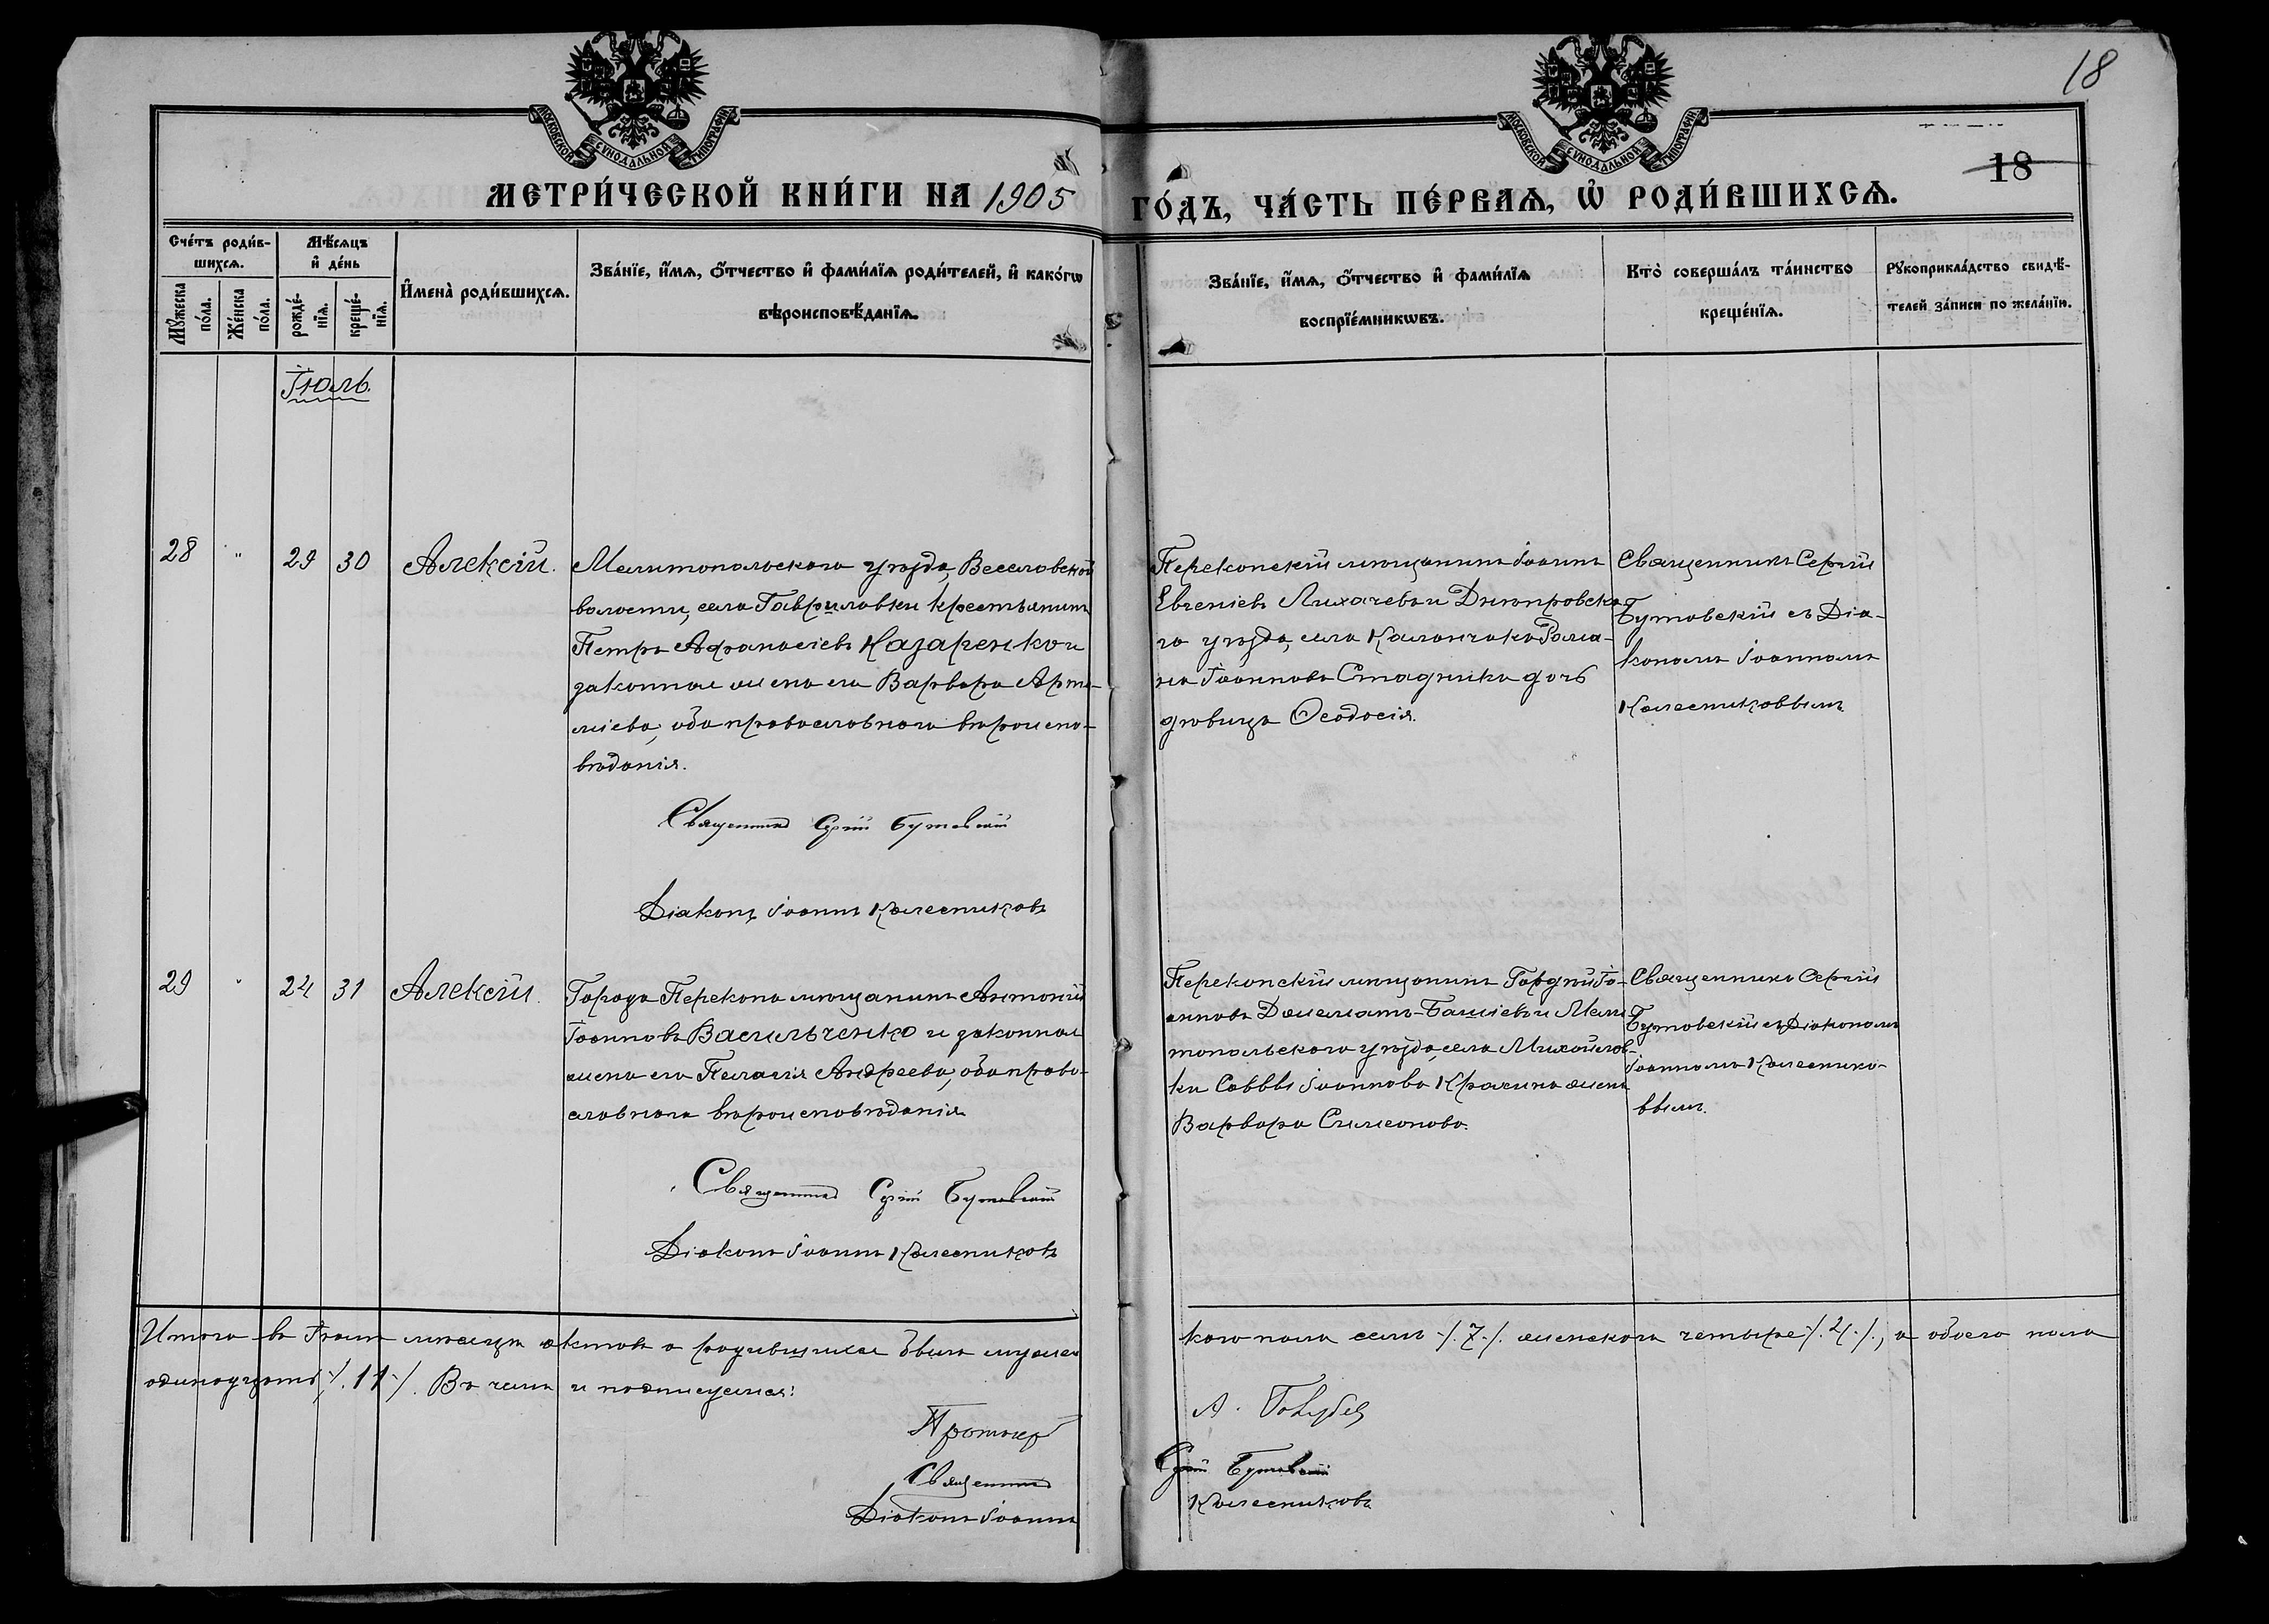 18
МОСКОВСКОЙ СѴНОДАЛЬНОЙ ТИПОГРАФІИ
МОСКОВСКОЙ СѴНОДАЛЬНОЙ ТИПОГРАФІИ
18
МЕТРИ́ЧЕСКОЙ КНИ́ГИ НА 1905 ГО́ДЪ, ЧА́СТЬ ПЕ́РВАѦ, Ѡ РОДИ́ВШИХСѦ.
Сче́тъ роди́в-
шихсѧ.
Мꙋ́жеска
по́ла.
Же́нска
по́ла.
Мѣ́сѧцъ
и҆ де́нь
рожде́-
нїѧ.
креще́-
нїѧ.
И҆мена̀ роди́вшихсѧ.
Зва́нїе, и҆́мѧ, ѻ҆́тчество и҆ фами́лїѧ роди́телей, и҆ како́гѡ
вѣроисповѣ́данїѧ.
Зва́нїе, и҆́мѧ, ѻ҆́тчество и҆ фами́лїѧ
воспрїе́мникѡвъ.
Кто̀ соверша́лъ та́инство
креще́нїѧ.
Рꙋкоприкла́дство свидѣ́-
телей за́писи по жела́нїи.
Іюль.
28 " 29 30 Алексій.
Мелитопольскаго уѣзда, Веселовской
волости, села Гавриловки крестьянинъ
Петръ Аѳанасіевъ Назаренко и
законная жена его Варвара Арте-
міева, оба православнаго вѣроиспо-
вѣданія.
Священникъ Сергій Бутовскій
Діаконъ Іоаннъ Колесниковъ
Перекопскій мѣщанинъ Іоаннъ
Евгеніевъ Лихачевъ и Днѣпровска-
го уѣзда, села Каланчака Рома-
на Іоаннова Стадника дочь
дѣвица Ѳеодосія.
Священникъ Сергій
Бутовскій съ Діа-
кономъ Іоанномъ
Колесниковымъ
29 " 24 31 Алексій.
Города Перекопа мѣщанинъ Антоній
Іоанновъ Васильченко и законная
жена его Пелагія Андреева, оба право-
славнаго вѣроисповѣданія
Священникъ Сергій Бутовскій
Діаконъ Іоаннъ Колесниковъ
Перекопскій мѣщанинъ Гордѣй Іо-
анновъ и Мели
топольскаго уѣзда, села Михайлов-
ки Саввы Іоаннова жена
Варвара Симеонова.
Священникъ Сергій
Бутовскій съ Діакономъ
Іоанномъ Колеснико-
вымъ.
Итого въ Іюлѣ мѣсяцѣ актовъ о родившихся было мужес
кого пола семь ·/.7./. женскаго четыре ·/.4./., а обоего пола
одинадцать ·/.11./. Въ чемъ и подписуемся:
Протоіер
А. Голубев
Священникъ
Сергій Бутовскій
Діаконъ Іоаннъ
Колесниковъ